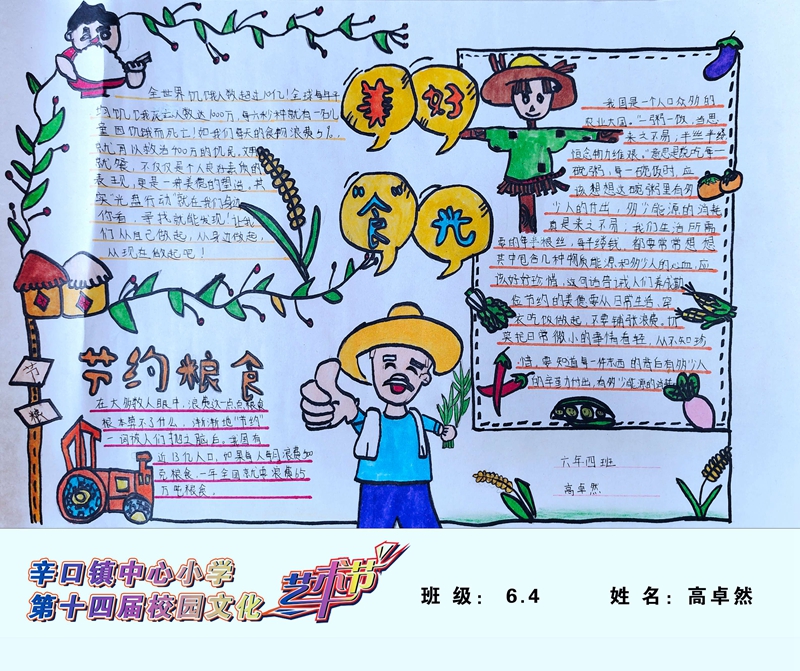 美好
"食"光
全世界饥饿人数超过10亿!全球每年于
因饥饿死亡人数达1000万,每六秒种就有一名儿
童因饥饿而死亡!如我们每天的食物浪费5%,
就可以救为400万的饥民,文明
就餐,不仅仅是个人良好素质的
表现,更是一种美德的塑造,其
实"光盘行动"就在我们身边
你看,寻找就能发现!让我
们从自己做起,从身边做起,
从现在做起吧!
我国是一个人口众多的
农业大国。"一粥一饭,当思
来之不易,半丝半缕
恒念物力维艰。"意思是说吃每一
碗粥,每一碗饭时,应
该想想这碗粥里有多
少人的付出,多少能源的消耗
真是来之不易,我们生活所需
要的每半根丝,每半缕线,都要常常想想
其中包含几种物质能源和多少人的心血,应
该好好珍惜,这句话告诉人们养成勤
俭节约的美德要从日常生活,穿
衣吃饭做起,不要铺张浪费,尤
其把日常做小的事情看轻,从不知珍
惜,要知道每一件东西的背后有多少人
的辛苦力付出,有多少能源的消耗
节约粮食
在大多数人眼中,浪费这一点点粮食
根本算不了什么,渐渐地"节约"
一词被人们
脑后。我国有
近13亿人口,如果每人每月浪费500
克粮食,一年全国就要浪费65
万吨粮食。
节
粮
六年四班
高卓然
辛口镇中心小学
第十四届校园文化
艺术节
班 级: 6.4
姓 名: 高卓然